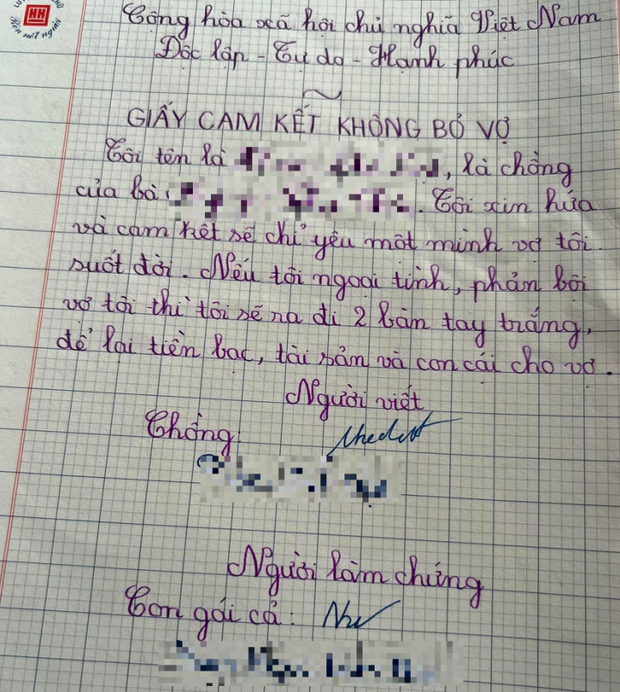 Cộng hòa xã hội chủ nghĩa Việt Nam
Độc lập - Tự do - Hạnh phúc
GIẤY CAM KẾT KHÔNG BỎ VỢ
Tôi tên là , là chồng
của bà . Tôi xin hứa
và cam kết sẽ chỉ yêu một mình vợ tôi
suốt đời. Nếu tôi ngoại tình, phản bội
vợ tôi thì tôi sẽ ra đi 2 bàn tay trắng,
để lại tiền bạc, tài sản và con cái cho vợ.
Người viết
Chồng:
Người làm chứng
Con gái cả: Như